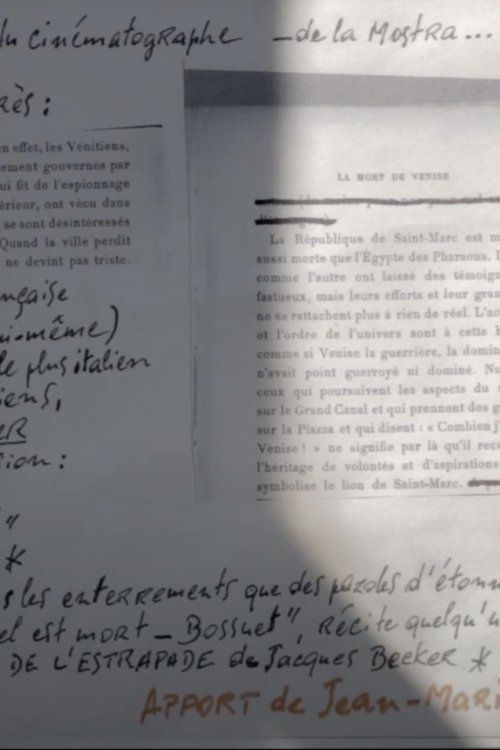 du cinématographe – de la Mostra...
rès :
en effet, les Vénitiens,
ement gouvernés par
ui fit de l'espionnage
érieur, ont vécu dans
se sont désintéressés
Quand la ville perdit
ne devint pas triste.
nçaise
i-même)
le plus italien
iens,
ER
sion :
"
*
LA MORT DE VENISE
La République de Saint-Marc est m
aussi morte que l'Égypte des Pharaons. L
comme l'autre ont laissé des témoign
fastueux, mais leurs efforts et leur gran
ne se rattachent plus à rien de réel. L'ac
et l'ordre de l'univers sont à cette h
comme si Venise la guerrière, la domin
n'avait point guerroyé ni dominé. No
ceux qui poursuivent les aspects du
sur le Grand Canal et qui prennent des g
sur la Piazza et qui disent : « Combien j'
Venise ! » ne signifie par là qu'il reco
l'héritage de volontés et d'aspirations
symbolise le lion de Saint-Marc.
s les enterrements que des paroles d'étonn
el est mort – Bossuet", récite quelqu'u
DE L'ESTRAPADE de Jacques Becker *
APPORT de Jean-Mari